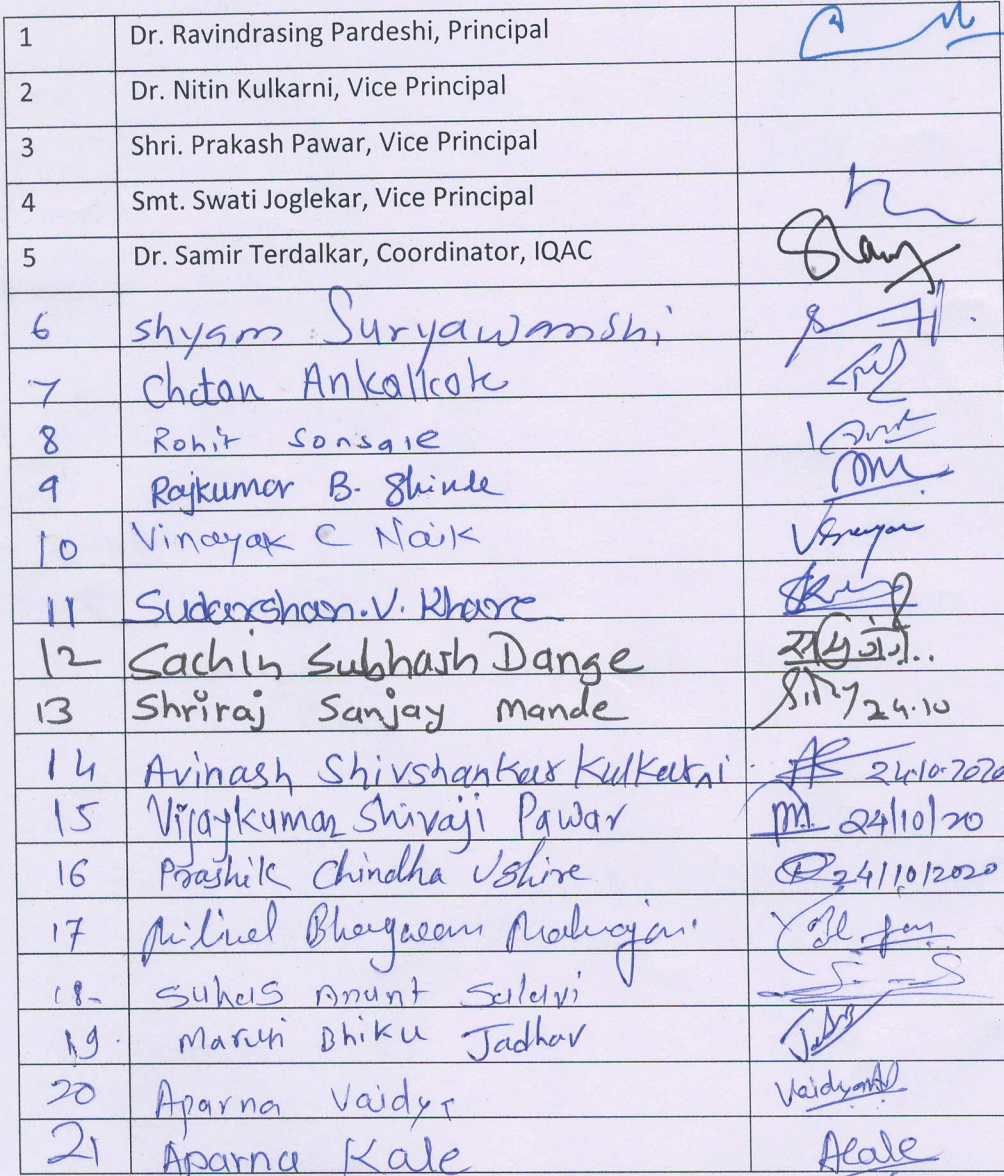 1 Dr. Ravindrasing Pardeshi, Principal
2 Dr. Nitin Kulkarni, Vice Principal
3 Shri. Prakash Pawar, Vice Principal
4 Smt. Swati Joglekar, Vice Principal
5 Dr. Samir Terdalkar, Coordinator, IQAC
6 Shyam Suryawanshi
7 Chetan Ankalkote
8 Rohit Sonsale
9 Rajkumar B. Shinde
10 Vinayak C Naik Vinayak
11 Sudarshan.V. Khare
12 Sachin Subhash Dange
13 Shriraj Sanjay Mande 24.10
14 Avinash Shivshankar Kulkarni 24.10.2020
15 Vijaykumar Shivaji Pawar 24/10/20
16 Prashik Chindha Ushire 24/10/2020
17 Milind Bhagwan Mahajan.
18- Suhas Anant Salvi
19. Maruti Bhiku Jadhav
20 Aparna Vaidya
21 Aparna Kale AKale